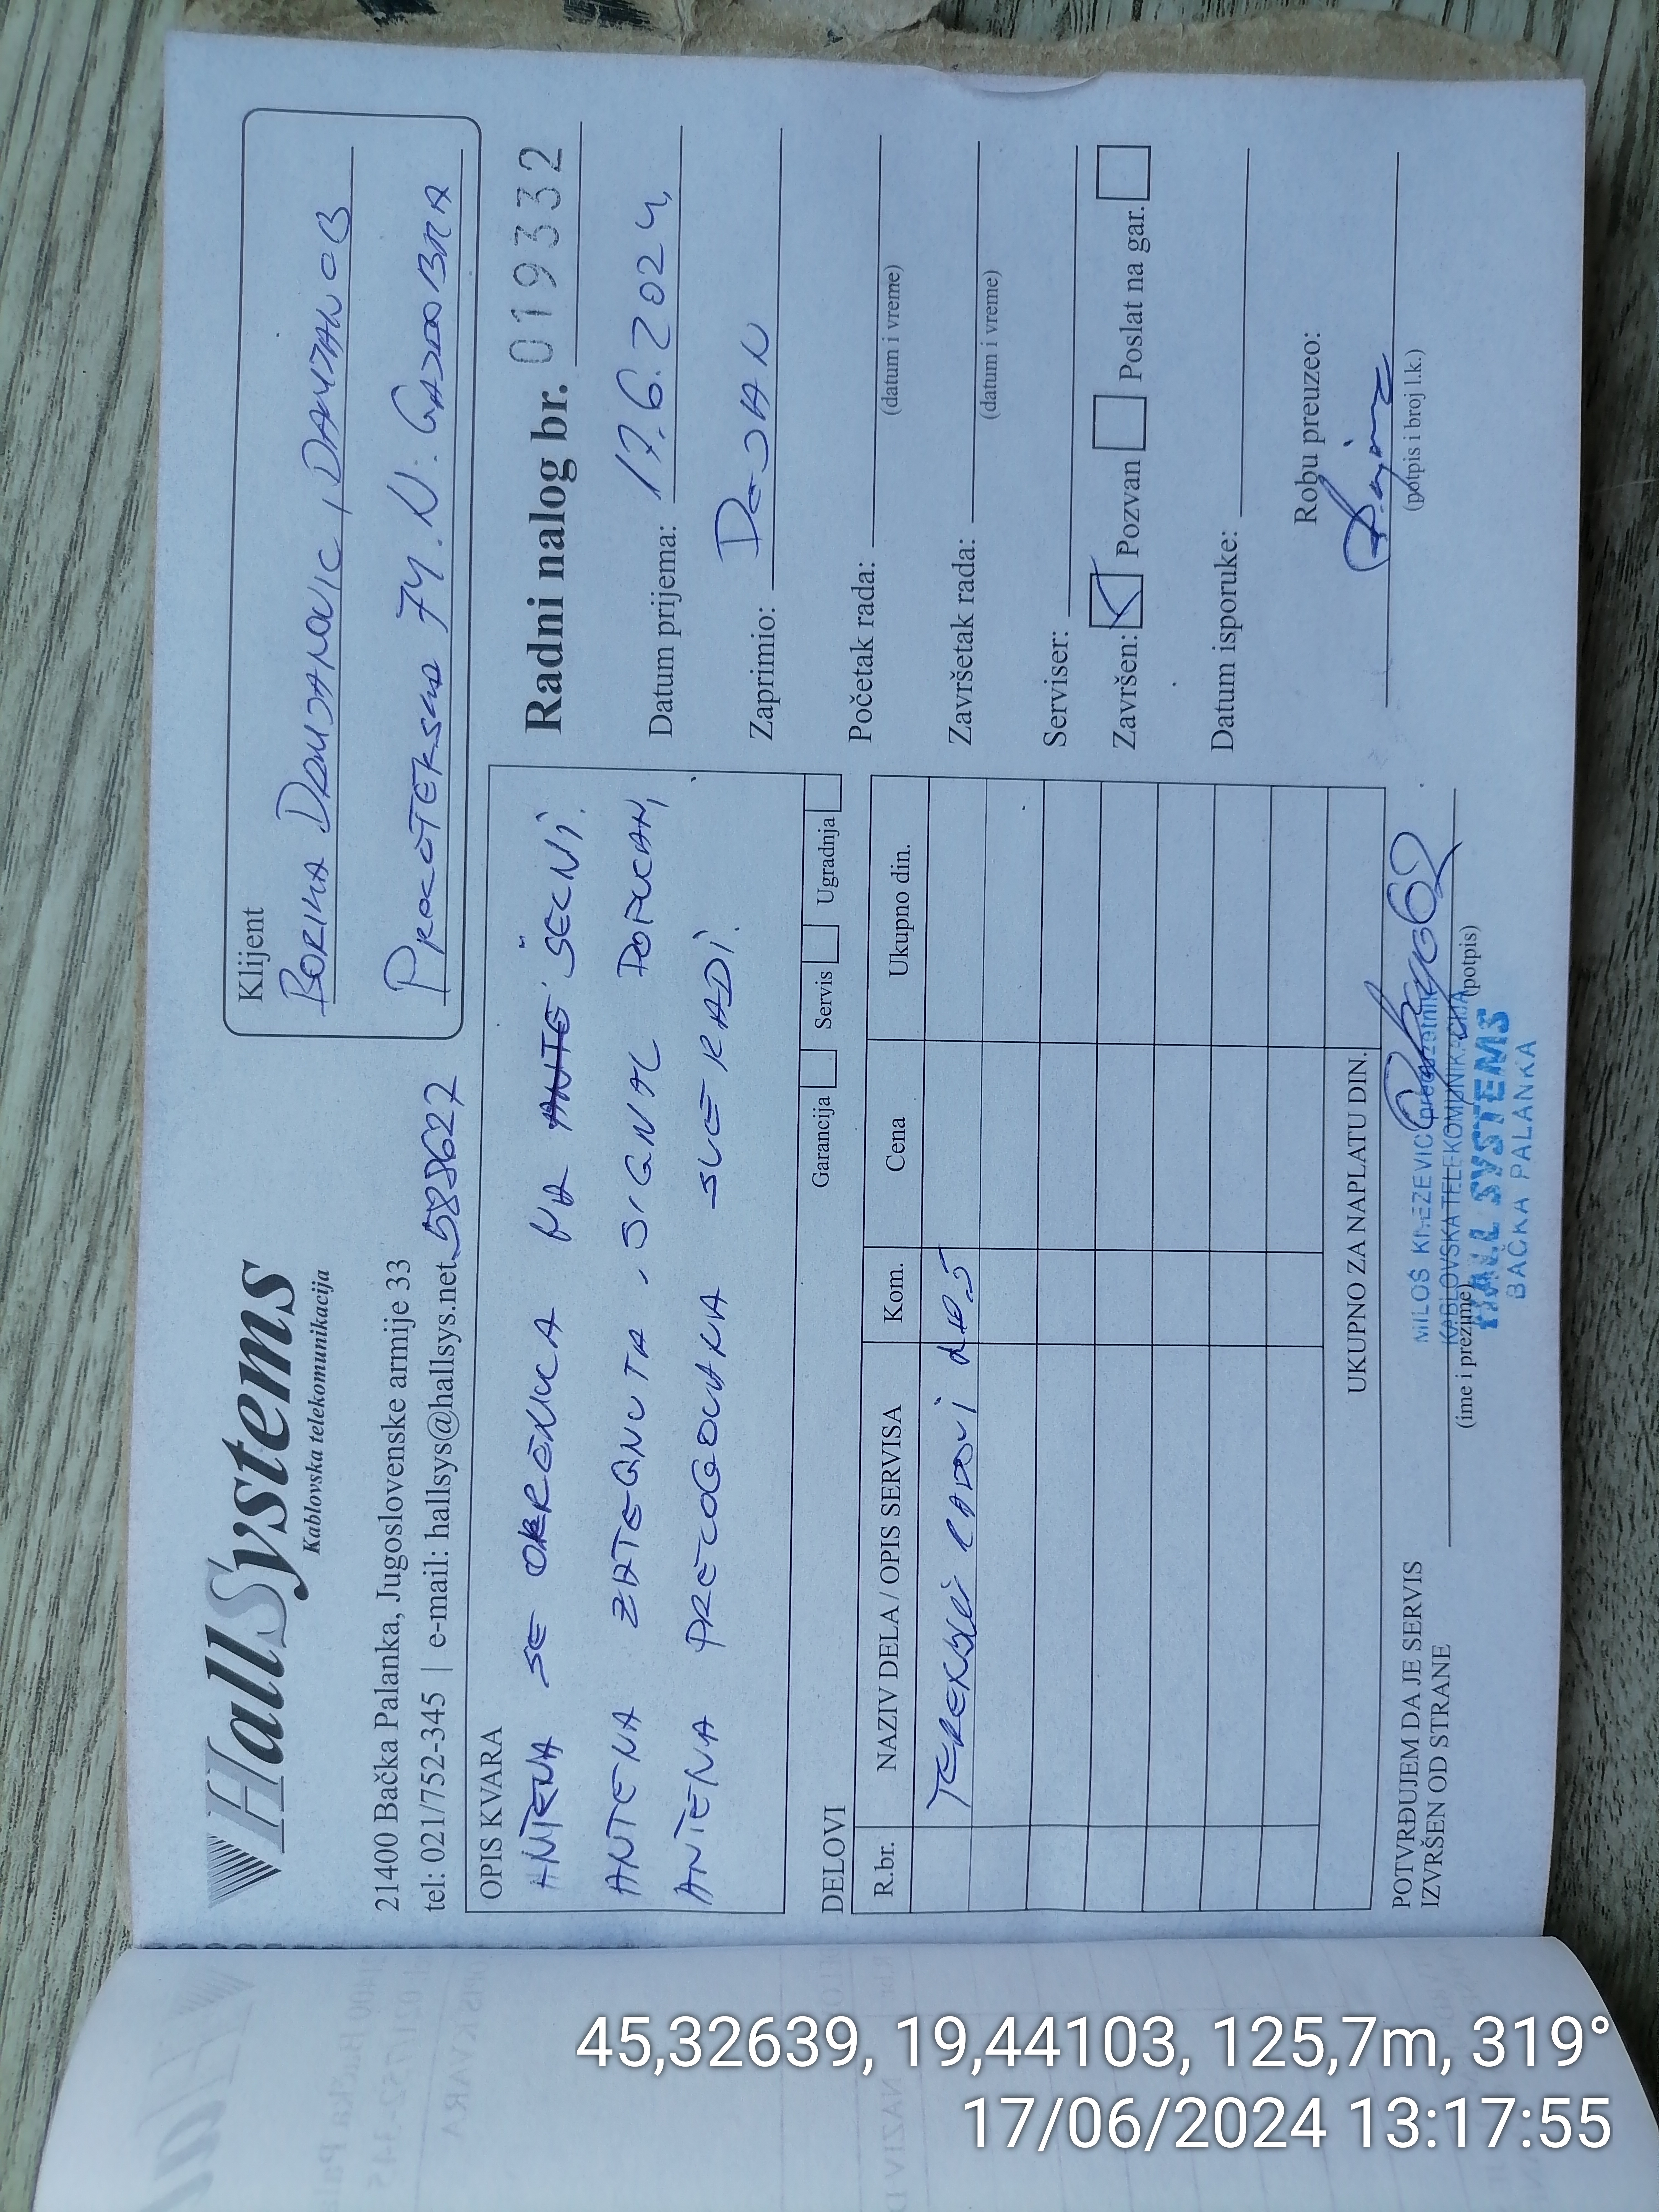 HallSystems
Kablovska telekomunikacija
21400 Bačka Palanka, Jugoslovenske armije 33
tel: 021/752-345 | e-mail: hallsys@hallsys.net
588627
Klijent
BORIKA DAMJANOVIC, DAMJANOB
74. N. GAJDOBRA
OPIS KVARA
ANTENA SE OKRENULA NA ŠECNI.
ANTENA ZATEGNUTA, SIGNAL DOPUCAN,
ANTENA PRECOGEDANA SVE RADI.
Garancija Servis Ugradnja
Radni nalog br. 019332
Datum prijema: 17.6.2024,
Zaprimio: DEJAN
Početak rada:
(datum i vreme)
Završetak rada:
(datum i vreme)
Serviser:
Završen: Pozvan Poslat na gar.
Datum isporuke:
Robu preuzeo:
(potpis i broj l.k.)
DELOVI
R.br. NAZIV DELA / OPIS SERVISA Kom. Cena Ukupno din.
TERENSKI RADOVI
UKUPNO ZA NAPLATU DIN.
POTVRĐUJEM DA JE SERVIS
IZVRŠEN OD STRANE
(ime i prezime) (potpis)
MILOŠ KNEZEVIĆ preduzetnik
KABLOVSKA TELEKOMUNIKACIJA
HALL SYSTEMS
BAČKA PALANKA
45,32639, 19,44103, 125,7m, 319°
17/06/2024 13:17:55